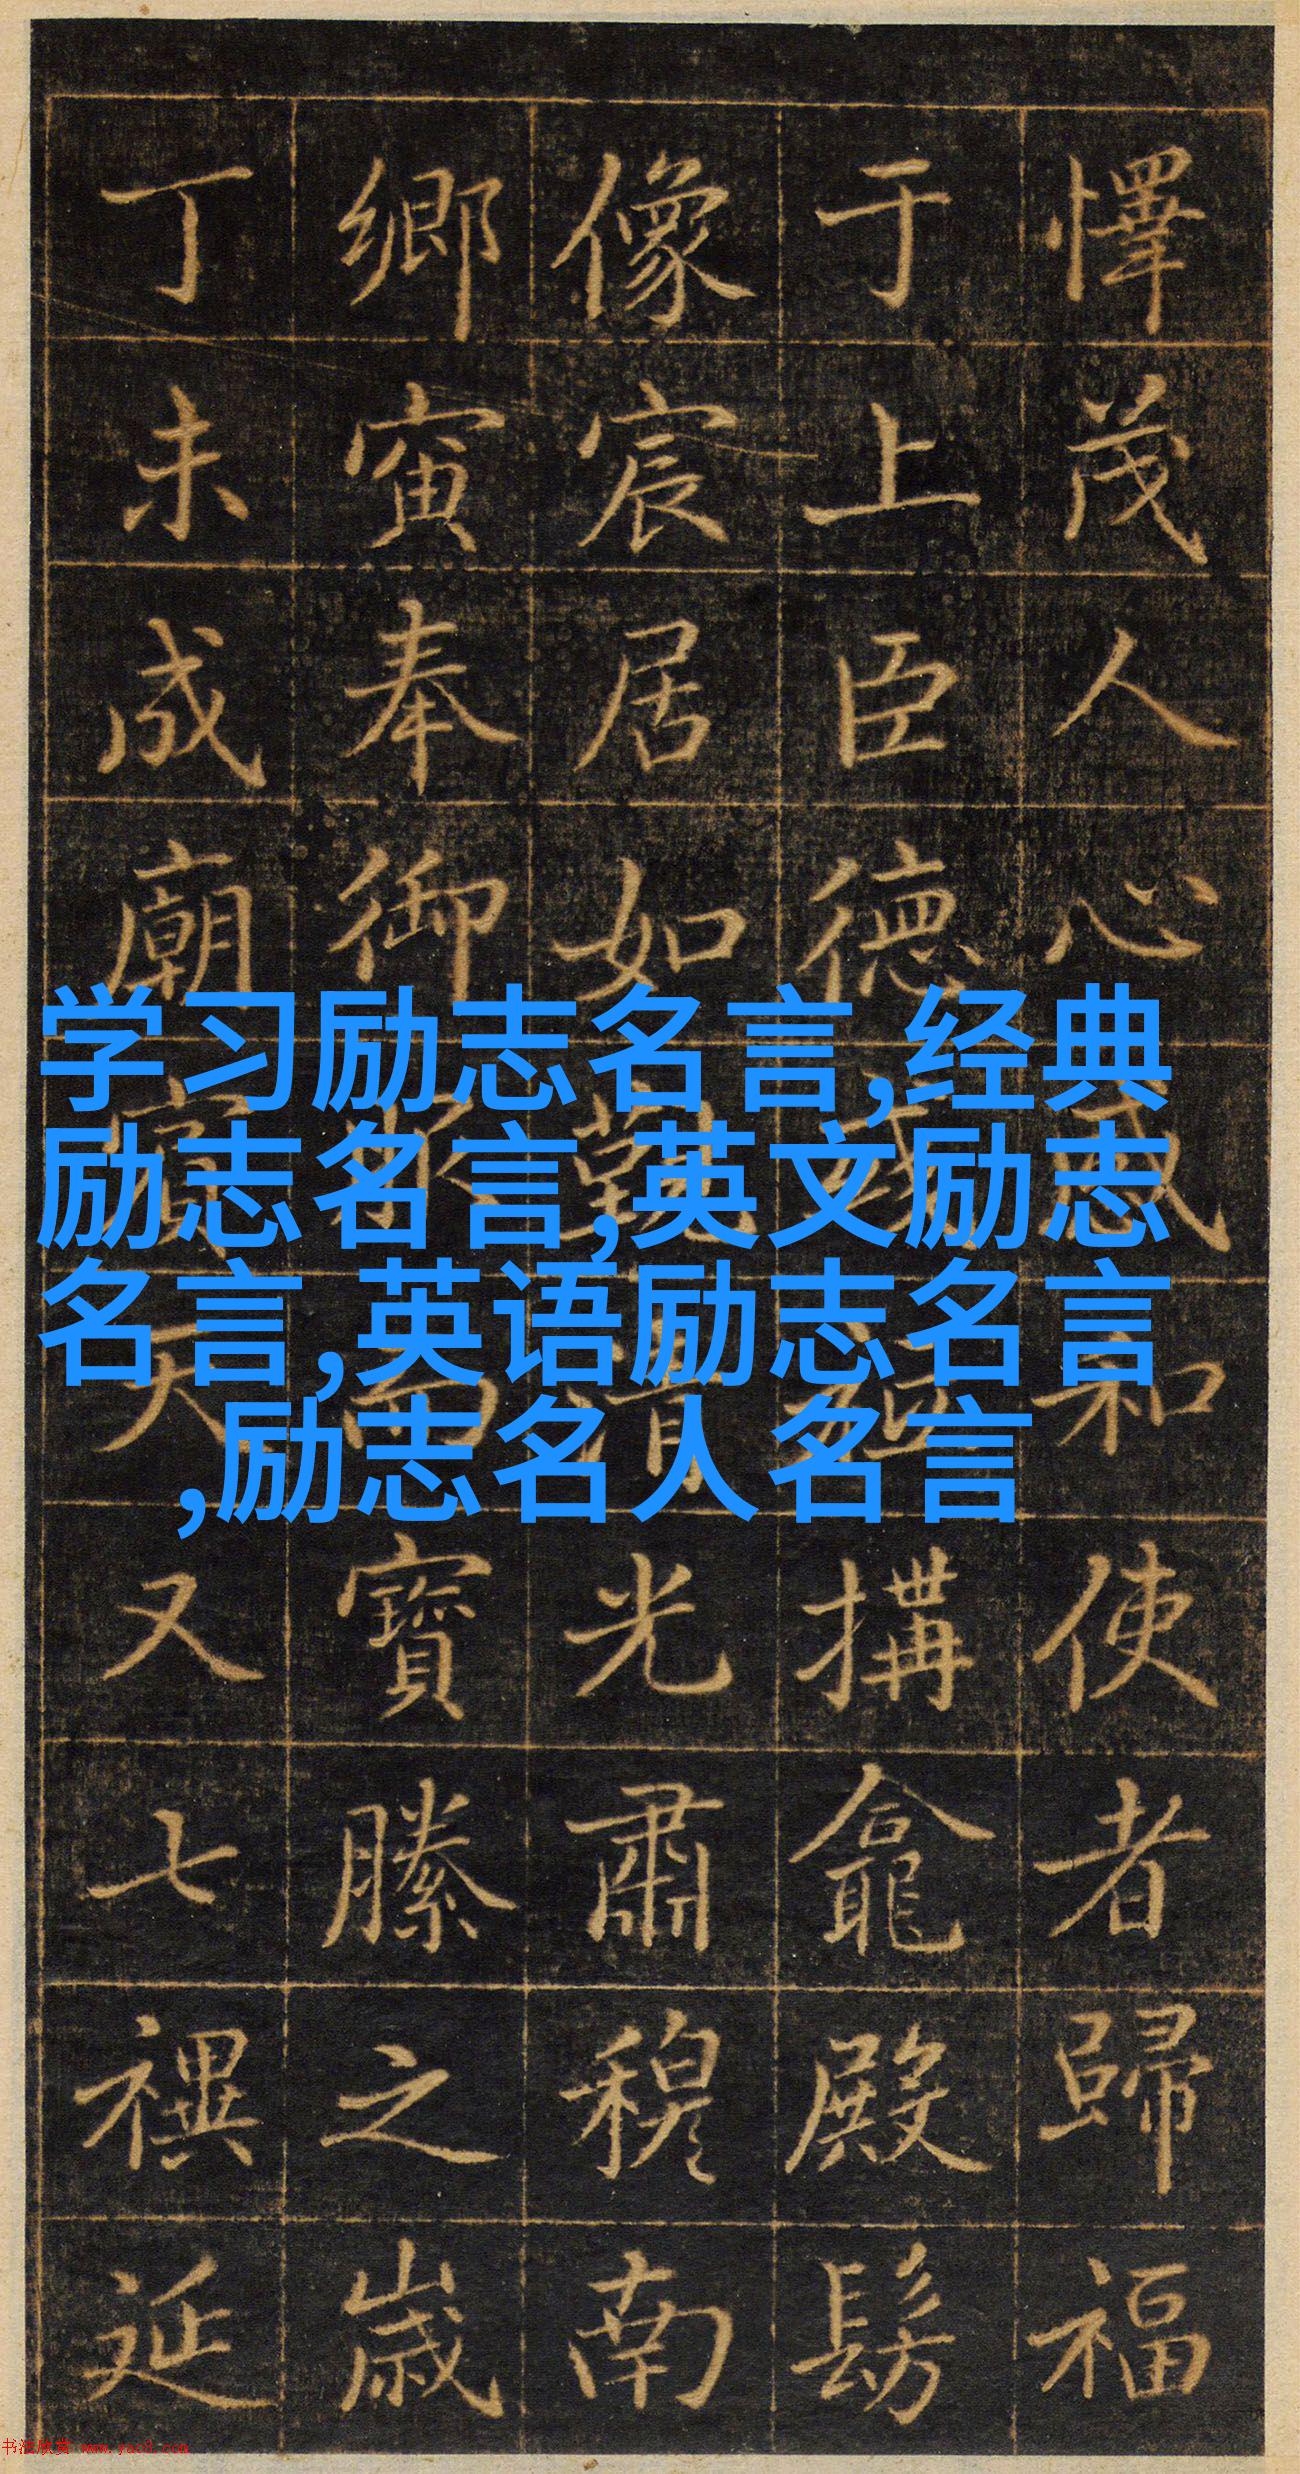 懌茂人心和使者歸福
于上臣德搆龕殿髣
像宸居如清光肅穆南
鄉寅奉御寶縢之歲
丁未成廟天又七禩延
学习励志名言,经典
励志名言,英文励志
名言,英语励志名言
,励志名人名言
书法欣赏 www.yac8.com